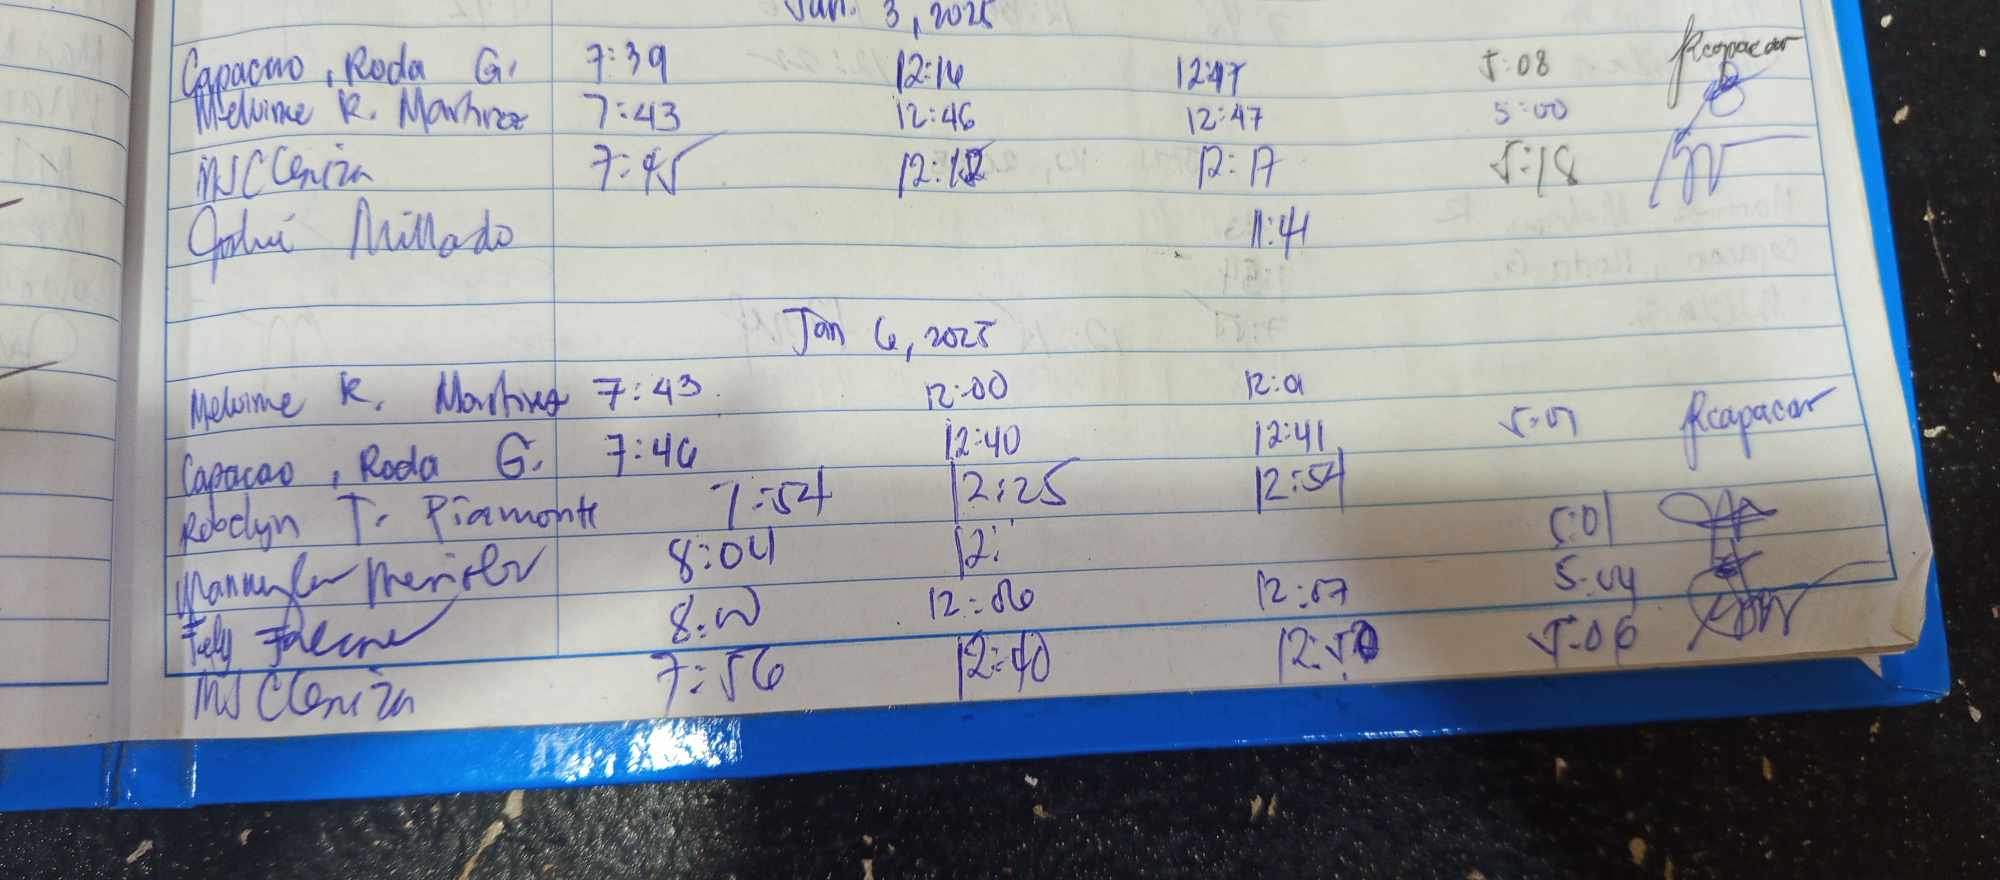 Jan. 3, 2025
Capacao, Roda G. 7:39 12:16 12:17 5:08 Rcapacao
Melvine R. Martinez 7:43 12:46 12:47 5:00
MSCleniza 7:45 12:12 12:17 5:18
Millado 11:41
Jan 6, 2025
Melvine R. Martinez 7:43 12:00 12:01
Capacao, Roda G. 7:46 12:40 12:41 5:01 Rcapacao
Robelyn T. Piamonte 7:54 12:25 12:54
8:04 12: 5:01
Fely 8:00 12:06 12:07 5:04
MSCleniza 7:56 12:40 5:06